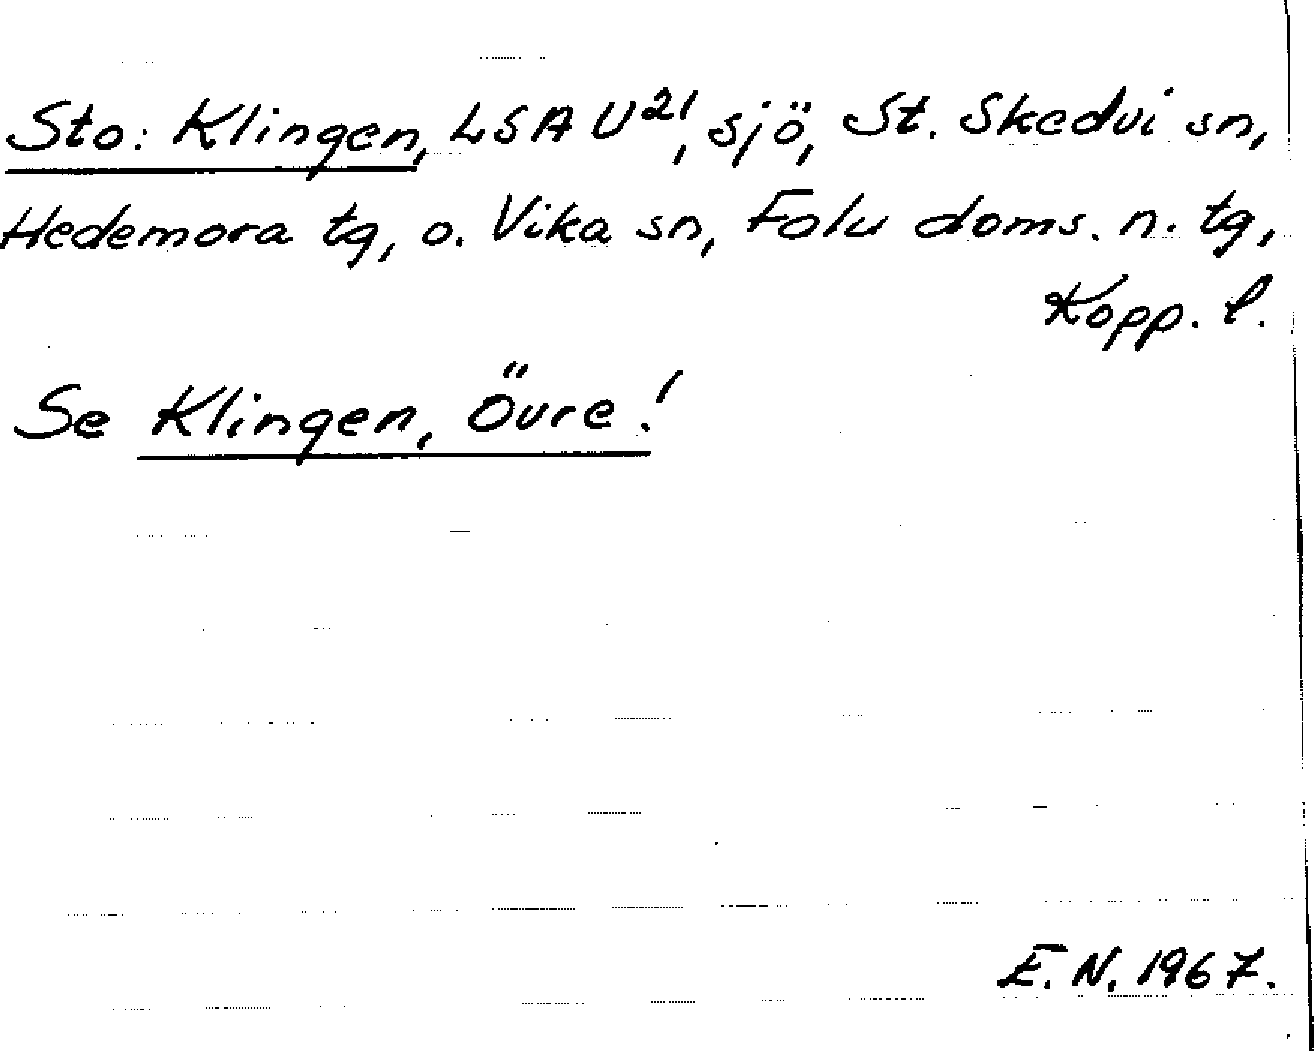 Sto: Klingen, LSA U21, sjö, St. Skedvi sn,
Hedemora tg, o. Vika sn, Falu doms. n. tg,
Kopp. l.
Se Klingen, Övre!
E. N. 1967.